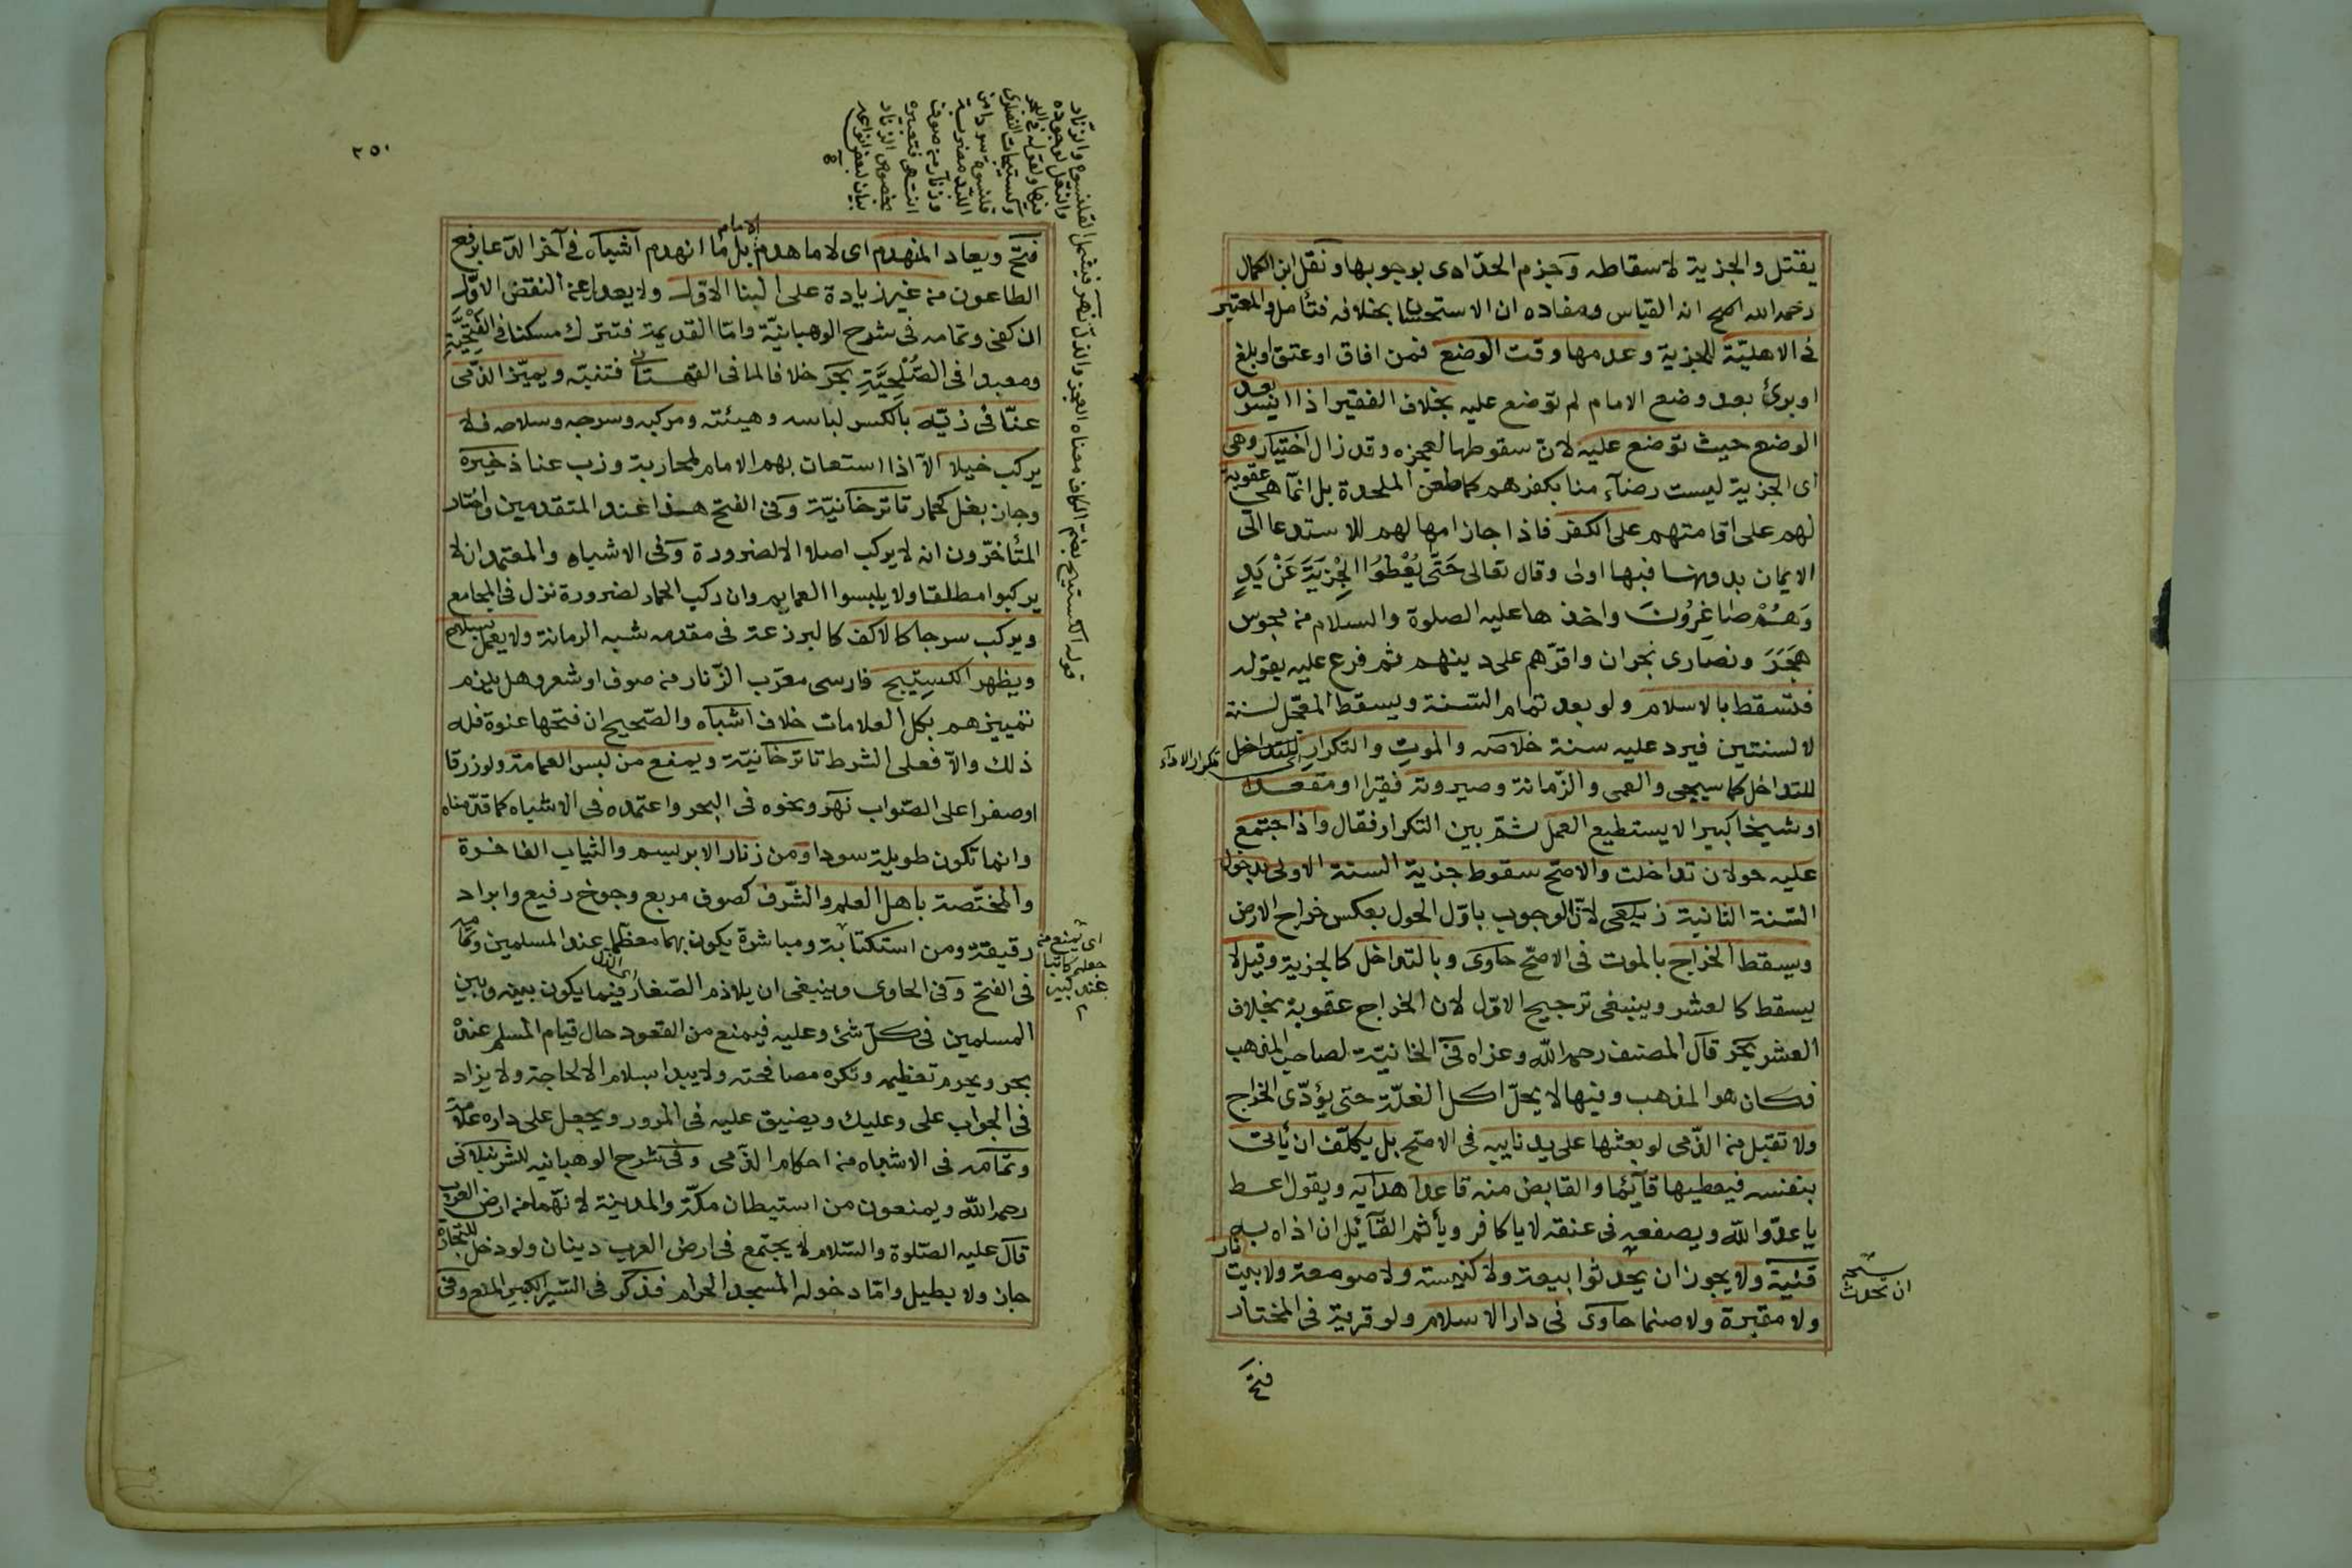 يقتل والجزية لاسقاطه وجزم الحدادى بوجوبها ونقل ابن الكمال
رحمه الله انه القياس ومفاده ان الاستحسان بخلافه فتأمل والمعتبر
فى الاهليّة للجزية وعدمها وقت الوضع فمن افاق اوعتق اوبلغ
اوبرئ بعد وضع الامام لم توضع عليه بخلاف الفقير اذا ايسر بعد
الوضع حيث توضع عليه لان سقوطها لعجزه وقد زال اختيار وهى
اى الجزية ليست رضآء منا بكفرهم كما طعن الملحدة بل انمآ هى عقوبة
لهم على اقامتهم على الكفر فاذا جاز امهالهم للاستدعا الى
الايمان بدونها فبها اولى وقال تعالى حَتَّى يُعْطُوا الْجِزْيَةَ عَنْ يَدٍ
وَهُمْ صَاغِرُونَ واخذها عليه الصلوة والسلام من مجوس
هَجَرَ ونصارى نجران واقرّهم على دينهم ثم فرع عليه بقوله
فتسقط بالاسلام ولو بعد تمام السّنة ويسقط المعجّل لسنة
لا لسنتين فيرد عليه سنة خلاصه والموتِ والتكرارِ للتداخل
تكرار الاداء
للتداخل كما سيجى والعمى والزّمانة وصيرورته فقيرا اومقعدا
اوشيخا كبيرا لا يستطيع العمل ثمّ بين التكرار فقال واذا اجتمع
عليه حولان تداخلت والاصحّ سقوط جزية السنة الاولى بدخول
السّنة الثانية زيلعى لانّ الوجوب باوّل الحول بعكس خراج الارض
ويسقط الخراج بالموت فى الاصحّ حاوى وبالتداخل كالجزية وقيل لا
يسقط كالعشر وينبغى ترجيح الاوّل لان الخراج عقوبة بخلاف
العشر بحر قال المصنف رحمه اللّه وعزاه فى الخانيّة لصاحب المذهب
فكان هو المذهب وفيها لا يحلّ اكل الغلّة حتى يؤدّى الخراج
ولا تقبل من الذّمى لو بعثها على يد نايبه فى الاصحّ بل يكلّف ان يأتى
بنفسه فيعطيها قآئما والقابض منه قاعدا هدايه ويقول اعط
يا عدوّ اللّه ويصفعه فى عنقه لا يا كافر ويأثم القآئل ان اذاه به
قنية ولا يجوز ان يحدثوا بيعة ولا كنيسته ولا صومعة ولا بيت نار
نسخه
ان يحدث
ولا مقبرة ولا صنما حاوى فى دار الاسلام ولو قرية فى المختار
فتح
٢٥٠
قوله الكستيج بضم الكاف معناه العجز والذل نهر فيشمل القلنسوة والزنار
والنعل لوجوده
فيها ولقوله فى البحر
وكستيجات النصارى
قلنسوة سودا من
اللبد مضربة
وزنار من صوف
انتهى فتعبيره
بخصوص الزنار
بيان لبعض انواعه
فتح ويعاد المنهدم اى لا ما هدمه الامام بل ما انهدم آشباه فى آخر الدّعا برفع
الطاعون من غير زيادة على البنا الاول ولا يعدل عن النقض الاوّل
ان كفى وتمامه فى شرح الوهبانيّة وامّا القديمة فتترك مسكنا فى الفَتْحِيَّةِ
ومعبدا فى الصُّلْحِيَّةِ بحر خلافا لما فى القهستانى فتنبّه ويميّز الذمّى
عنّا فى زيّه بالكسر لباسه وهيئته ومركبه وسرجه وسلاحه فلا
يركب خيلا الّا اذا استعان بهم الامام لمحاربة وذب عنا ذخيره
وجاز بغل كحمار تاترخانيّة وفى الفتح هذا عند المتقدمين واختار
المتأخرّون ان لا يركب اصلا الا لضرورة وفى الاشباه والمعتمد ان لا
يركبوا مطلقا ولا يلبسوا العمايم وان ركب الحمار لضرورة نزل فى المجامع
ويركب سرجا كالاكف كالبرذعة فى مقدمه شبه الرمانة ولا يعمل بسلاح
ويظهر الكستيج فارسى معرّب الزّنار من صوف اوشعر وهل يلزم
تمييزهم بكل العلامات خلاف اشباه والصّحيح ان فتحها عنوة فله
ذلك والا فعلى الشرط تاترخانيّة ويمنع من لبس العمامة ولو زرقا
اوصفرا على الصّواب نهر ونحوه فى البحر واعتمده فى الاشباه كما قدّمناه
وانما تكون طويلة سودا ومن زنار الابريسم والثياب الفاخرة
والمختصة باهل العلم والشّرف كصوف مربع وجوخ رفيع وابراد
رقيقة ومن استكتابة ومباشرة يكون بهما معظّما عند المسلمين وتمامه
اى يمنع من
جعله كاتبا
عند كبير
فى الفتح وفى الحاوى وينبغى ان يلازم الصّغار اى الذل فيما يكون بينه وبين
المسلمين فى كلّ شئ وعليه فيمنع من القعود حال قيام المسلم عنده
بحر ويحرم تعظيمه وتكره مصافحته ولا يبدا بسلام الا لحاجة ولا يزاد
فى الجواب على وعليك ويضيق عليه فى المرور ويجعل على داره علامة
وتمامه فى الاشباه من احكام الذّمى وفى شرح الوهبانيه للشرنبلانى
رحمه اللّه ويمنعون من استيطان مكّة والمدينة لانّهما من ارض العرب
قال عليه الصّلوة والسّلام لا يجتمع فى ارض العرب دينان ولو دخل للتجارة
جاز ولا يطيل وامّا دخوله المسجد الحرام فذكر فى السّير الكبير المنع وفى